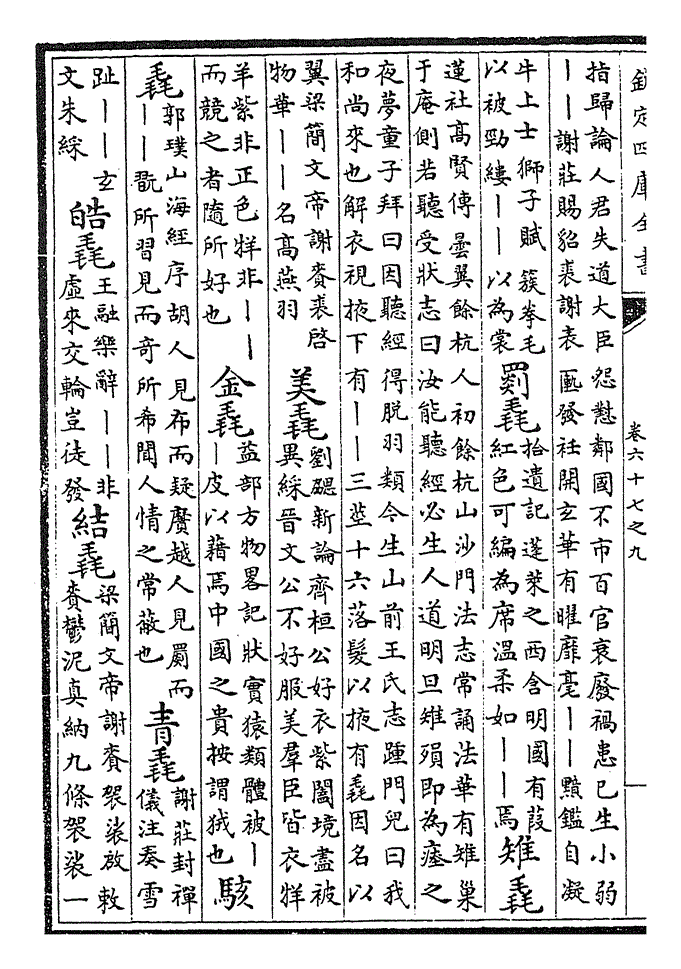 欽定四庫全書 卷六十七之九
指歸論人君失道大臣怨懟鄰國不市百官衰廢禍患已生小弱
——謝莊賜貂裘謝表匭發祍開玄華有曜靡毫——黯鑑自凝
牛上士獅子賦簇拳毛
以被勁縷——以為裳
罽毳
拾遺記蓬萊之西含明國有葭
紅色可編為席溫柔如——焉
雉毳
蓮社高賢傳曇翼餘杭人初餘杭山沙門法志常誦法華有雉巢
于庵側若聽受狀志曰汝能聽經必生人道明旦雉殞即為瘞之
夜夢童子拜曰因聽經得脱羽類今生山前王氏志踵門兒曰我
和尚來也解衣視掖下有——三莖十六落髮以掖有毳因名以
翼梁簡文帝謝賚裘啓
物華——名高燕羽
美毳
劉勰新論齊桓公好衣紫闔境盡被
異綵晉文公不好服美羣臣皆衣牂
羊紫非正色牂非——
而競之者隨所好也
金毳
益部方物畧記狀實猿類體被—
—皮以藉焉中國之貴按謂狨也
駭
毳
郭璞山海經序胡人見布而疑黂越人見罽而
——翫所習見而奇所希聞人情之常蔽也
青毳
謝莊封禪
儀注奏雪
趾——玄
文朱綵
皓毳
王融樂辭——非
虛來交輪豈徒發
結毳
梁簡文帝謝賚袈裟啟敕
賚鬱泥真納九條袈裟一